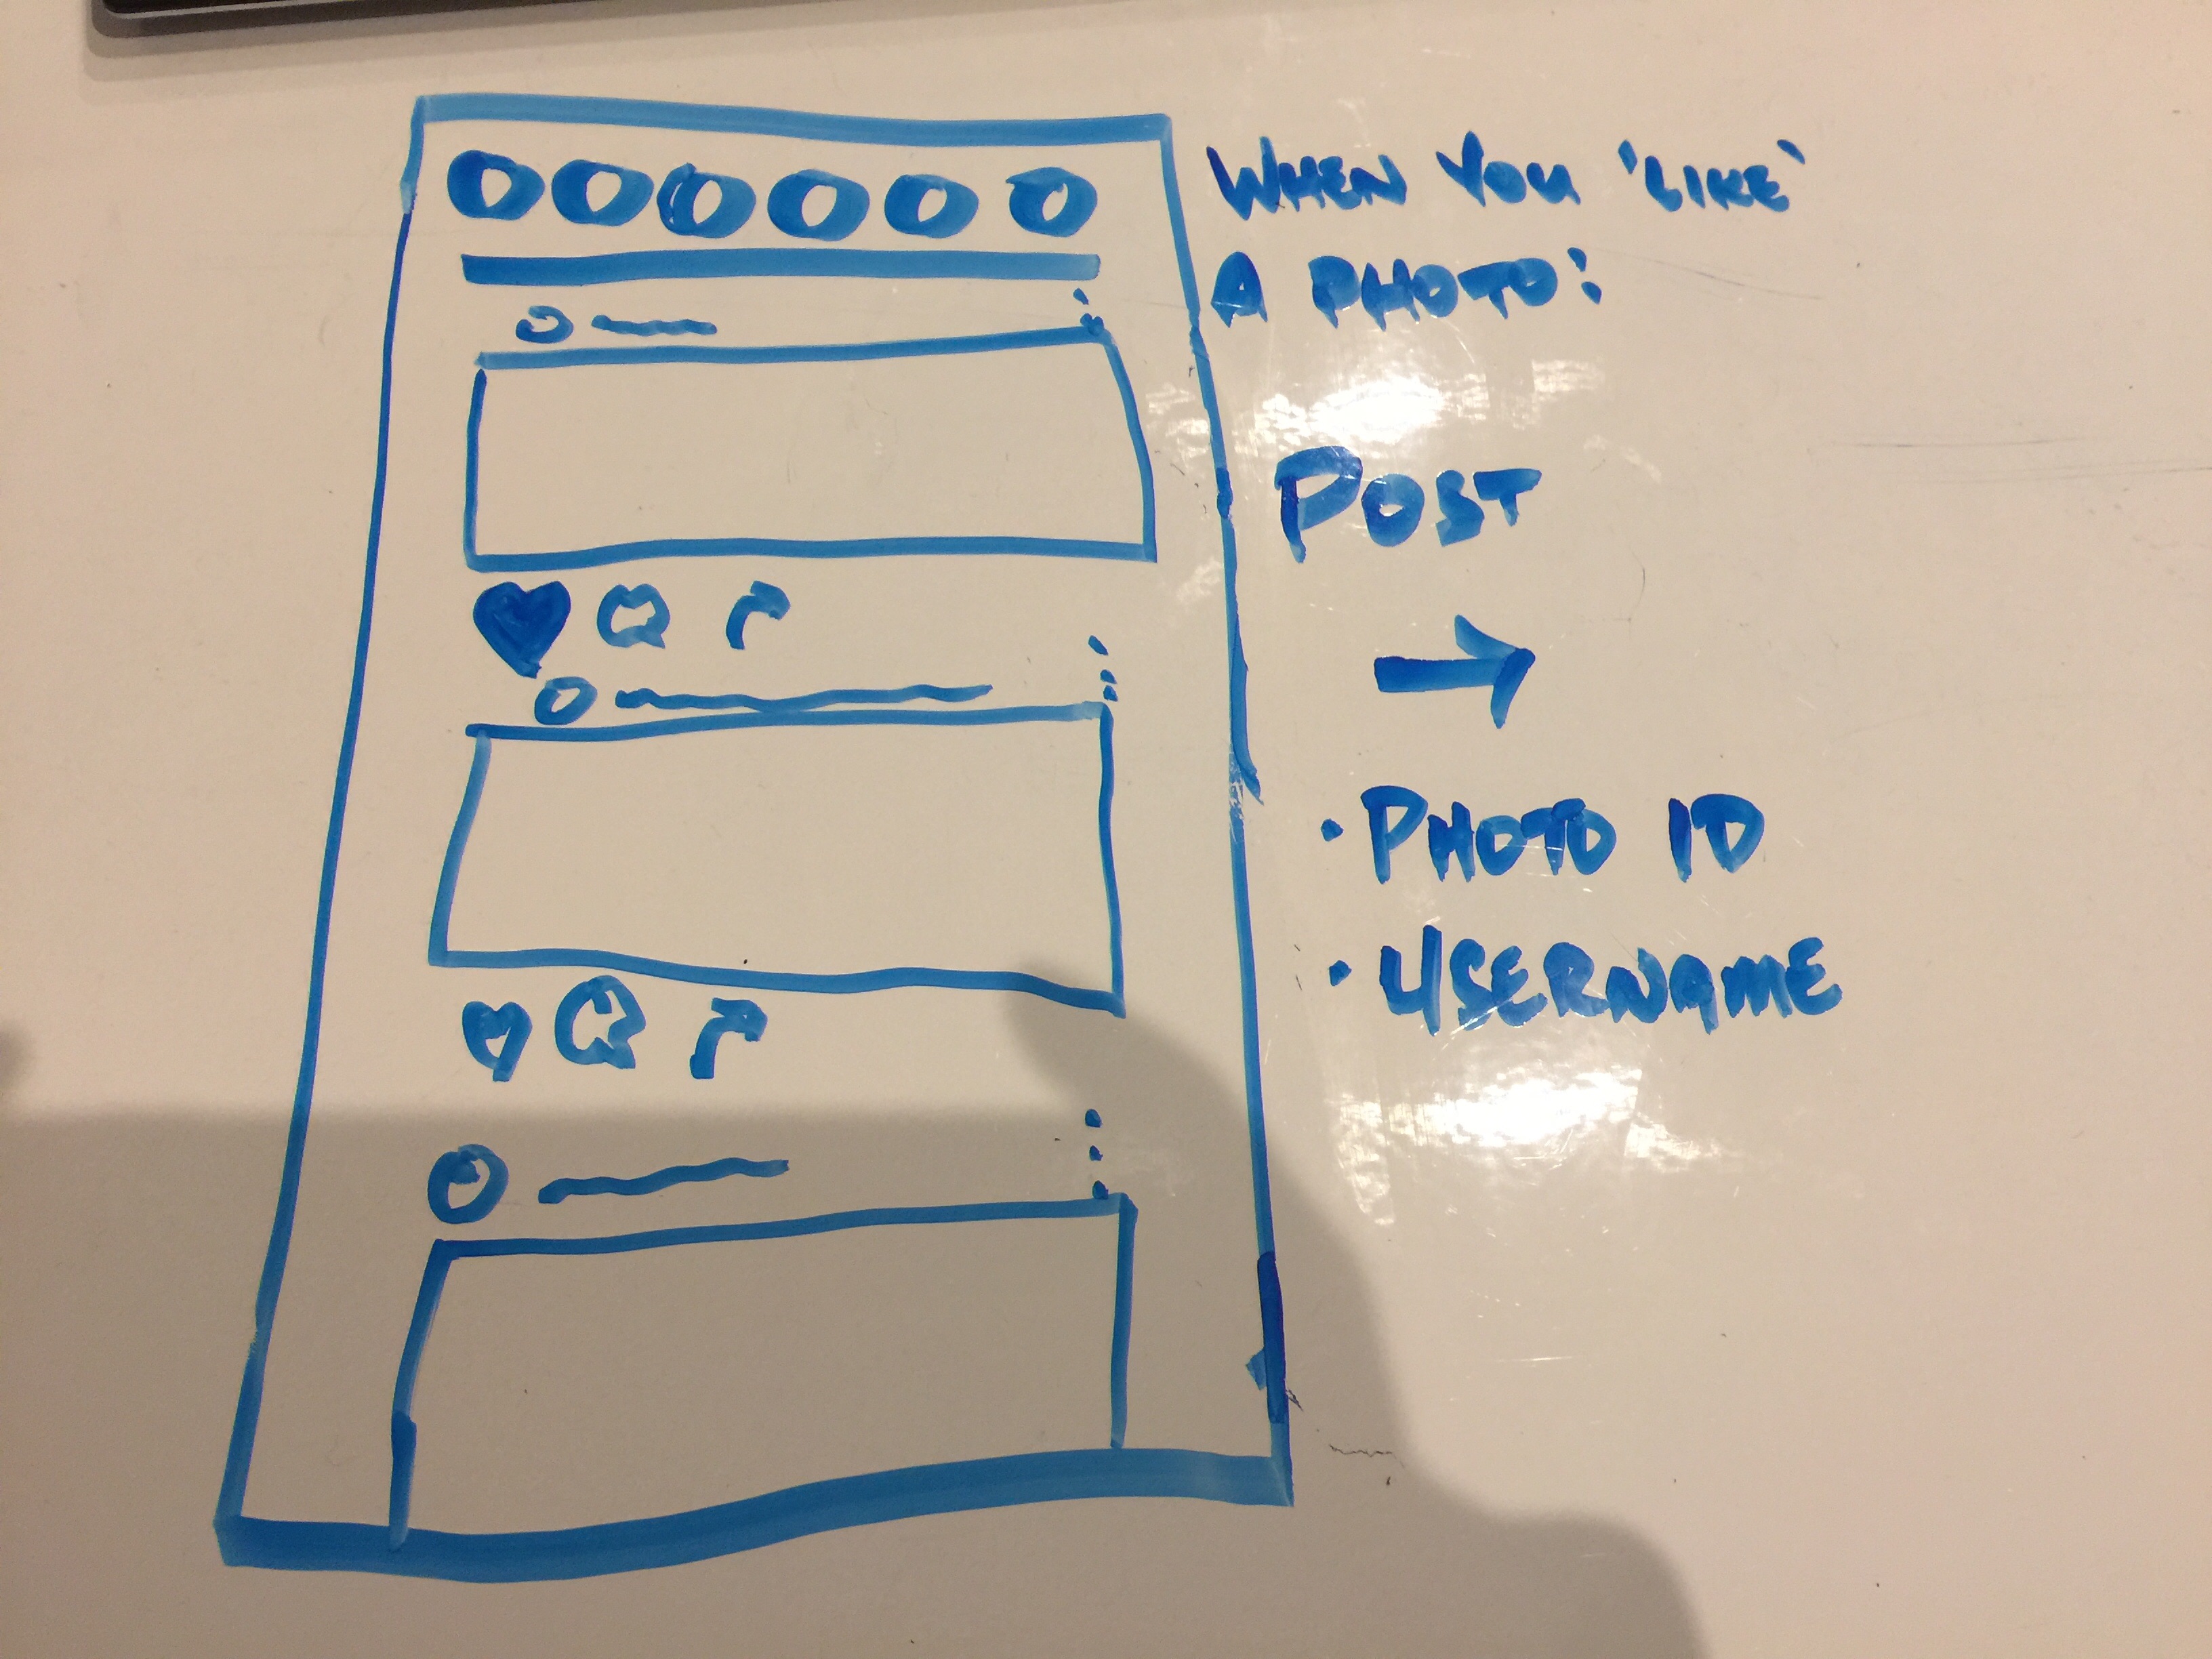 WHEN YOU 'LIKE'
A PHOTO:
POST
→
· PHOTO ID
· USERNAME